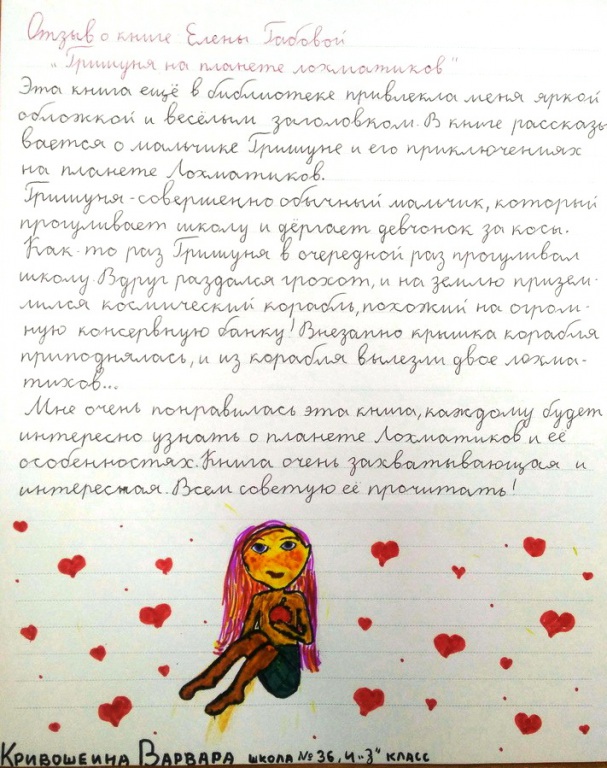 Отзыв о книге Елены Габовой
„Гришуня на планете лохматиков"
Эта книга ещё в библиотеке привлекла меня яркой
обложкой и весёлым заголовком. В книге рассказы
вается о мальчике Гришуне и его приключениях
на планете Лохматиков.
Гришуня - совершенно обычный мальчик, который
прогуливает школу и дёргает девчонок за косы.
Как-то раз Гришуня в очередной раз прогуливал
школу. Вдруг раздался грохот, и на землю призем-
лился космический корабль, похожий на огром-
ную консервную банку! Внезапно крышка корабля
приподнялась, и из корабля вылезли двое лохма-
тиков...
Мне очень понравилась эта книга, каждому будет
интересно узнать о планете Лохматиков и её
особенностях. Книга очень захватывающая и
интересная. Всем советую её прочитать!
Кривошеина Варвара школа № 36, 4 „З" класс